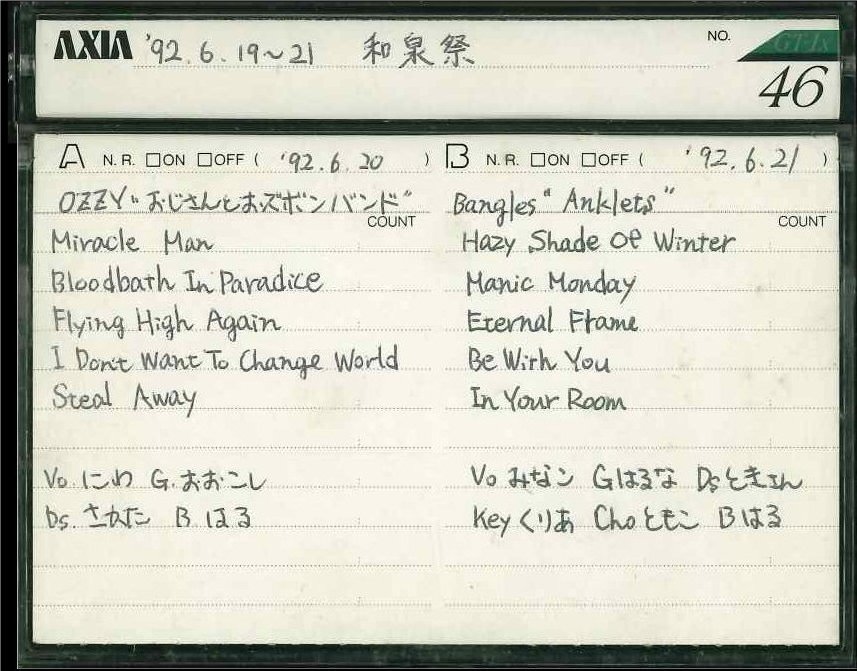 AXIA '92.6.19~21 和泉祭 NO. GT-Ix
46
A N.R. □ON □OFF ( '92.6.20 )
OZZY "おじさんとおズボンバンド"
COUNT
Miracle Man
Bloodbath In Paradice
Flying High Again
I Don't Want To Change World
Steal Away
Vo. にわ G. おおこし
Ds. さかた B はる
B N.R. □ON □OFF ( '92.6.21 )
Bangles "Anklets"
COUNT
Hazy Shade Of Winter
Manic Monday
Eternal Flame
Be With You
In Your Room
Vo みなこ G はるな Ds ときえん
Key くりあ Cho ともこ B はる